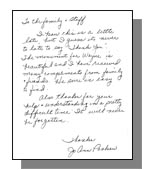 To the family & staff
I know this is a little
late but I guess its never
to late to say "Thank You".
The monument for Wayne is
beautiful and I have received
many compliments from family
& friends. He sure was
a find.
Also thanks for your
help & understanding in a pretty
difficult time. It will never
be forgotten.
Thanks
Jo Ann